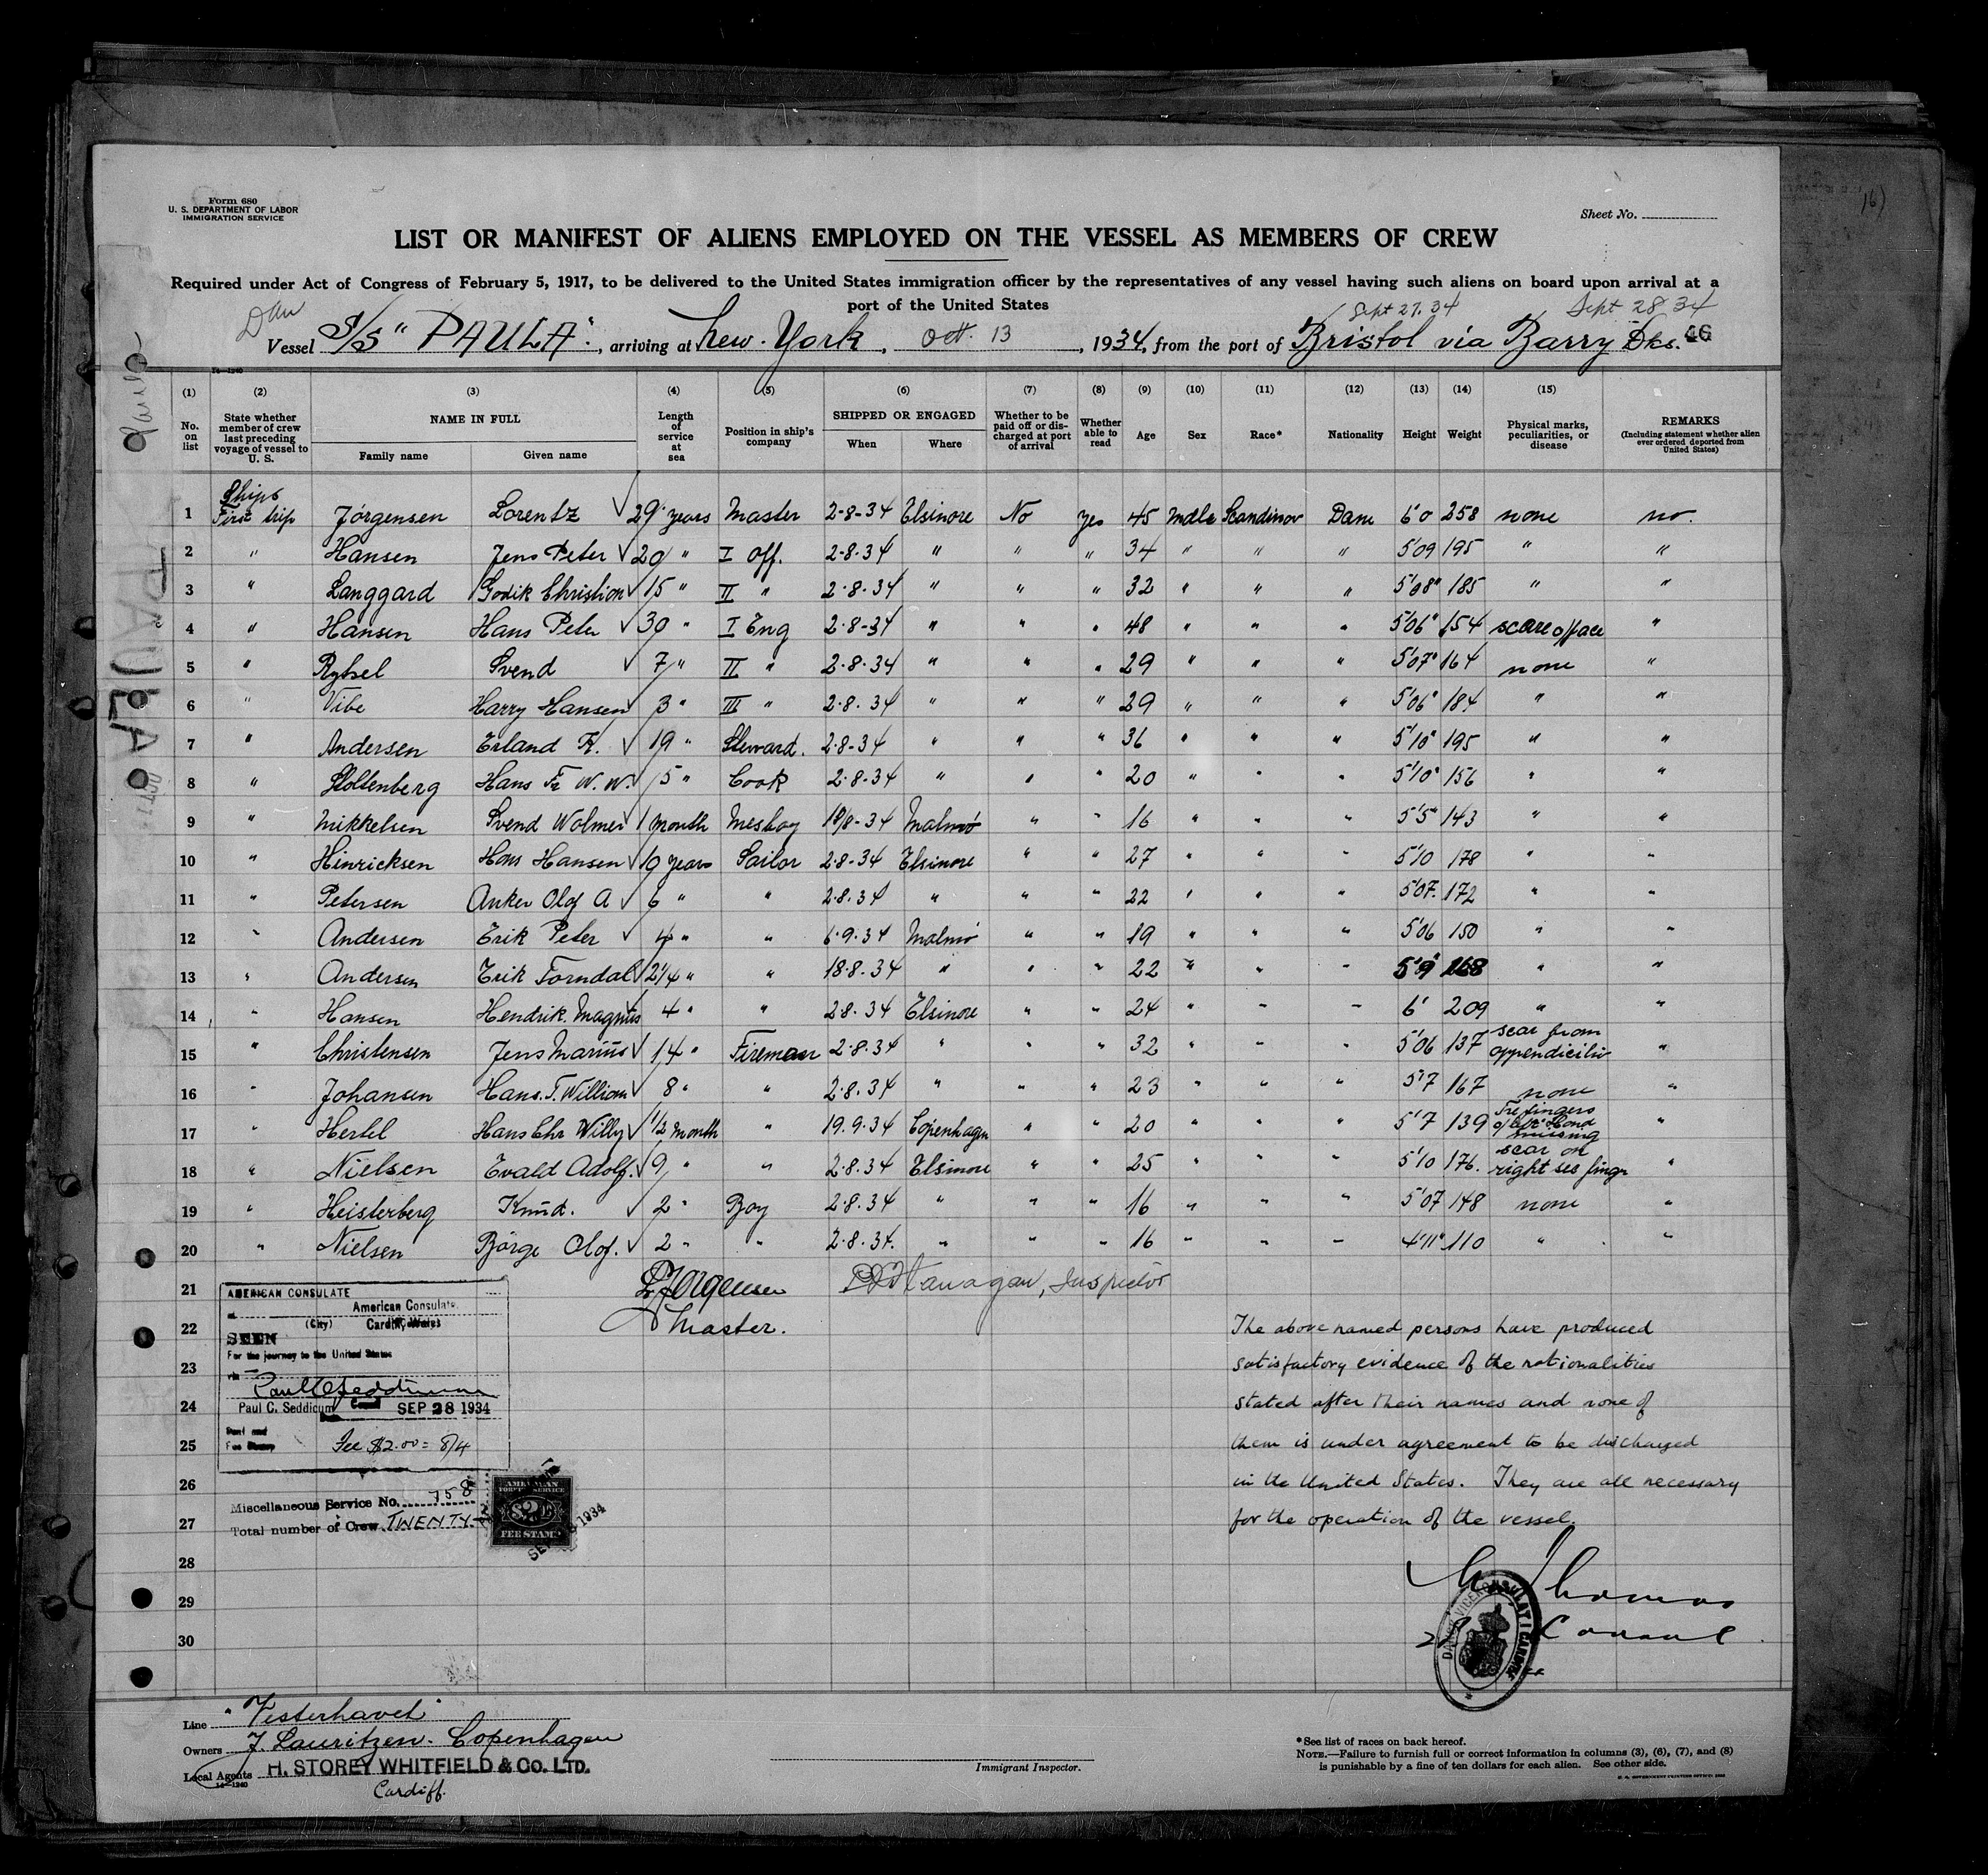 Form 680
U. S. DEPARTMENT OF LABOR
IMMIGRATION SERVICE
Sheet No.
LIST OR MANIFEST OF ALIENS EMPLOYED ON THE VESSEL AS MEMBERS OF CREW
Required under Act of Congress of February 5, 1917, to be delivered to the United States immigration officer by the representatives of any vessel having such aliens on board upon arrival at a
port of the United States
Dan Sept 27. 34 Sept 28 34
Vessel S/S "PAULA", arriving at New. York, Oct. 13, 1934, from the port of Bristol via Barry Dks. 46
(1) (2) (3) (4) (5) (6) (7) (8) (9) (10) (11) (12) (13) (14) (15)
No. on list
State whether member of crew last preceding voyage of vessel to U. S.
NAME IN FULL
Family name Given name
Length of service at sea
Position in ship's company
SHIPPED OR ENGAGED
When Where
Whether to be paid off or discharged at port of arrival
Whether able to read
Age Sex Race* Nationality Height Weight
Physical marks, peculiarities, or disease
REMARKS
(Including statement whether alien ever ordered deported from United States)
1 Ships First trip Jörgensen Lorentz √ 29 years Master 2-8-34 Elsinore No yes 45 Male Scandinav Dane 6'0 258 none no.
2 " Hansen Jens Peter √ 20 " I Off. 2-8-34 " " " 34 " " " 5'09 195 " "
3 " Langgard Godik Christian √ 15 " II " 2-8-34 " " " 32 " " " 5'08" 185 " "
4 " Hansen Hans Peter √ 30 " I Eng 2-8-34 " " " 48 " " " 5'06" 154 scare of face "
5 " Svend √ 7 " II " 2-8-34 " " " 29 " " " 5'07" 164 none "
6 " Vibe Harry Hansen √ 3 " III " 2-8-34 " " " 29 " " " 5'06" 184 " "
7 " Andersen Erland √ 19 " Steward. 2-8-34 " " " 36 " " " 5'10" 195 " "
8 " Stoltenberg Hans Fr W. W. √ 5 " Cook 2-8-34 " " " 20 " " " 5'10" 156 " "
9 " Mikkelsen Svend Wolmer √ 1 month Mesboy 18/8-34 Malmö " " 16 " " " 5'5" 143 " "
10 " Hinricksen Hans Hansen √ 10 years Sailor 2-8-34 Elsinore " " 27 " " " 5'10 178 " "
11 " Petersen Anker Olof A √ 6 " " 2-8-34 " " " 22 " " " 5'07. 172 " "
12 " Andersen Erik Peter √ 4 " " 6-9-34 Malmö " " 19 " " " 5'06 150 " "
13 " Andersen Erik Forndal √ 2 1/4 " " 18-8-34 " " " 22 " " " 5'9" 168 " "
14 " Hansen Hendrik. Magnus √ 4 " " 2-8-34 Elsinore " " 24 " " " 6' 209 " "
15 " Christensen Jens Marius √ 14 " Fireman 2-8-34 " " " 32 " " " 5'06 137 scar from appendicitis "
16 " Johansen Hans. T. William √ 8 " " 2-8-34 " " " 23 " " " 5'7 167 none "
17 " Hertel Hans Chr Willy √ 1/2 month " 19.9.34 Copenhagen " " 20 " " " 5'7 139 fingers Hand missing "
18 " Nielsen Evald Adolf. √ 9 " " 2-8-34 Elsinore " " 25 " " " 5'10 176. scar on right finger "
19 " Heisterberg Knud. √ 2 " Boy 2-8-34 " " " 16 " " " 5'07 148 none "
20 " Nielsen Börge Olof. √ 2 " " 2-8-34. " " " 16 " " " 4'11" 110 " "
21 L Jörgensen Flanagan, Inspector
22 Master.
23
24
25
26
27
28
29
30
The above named persons have produced
satisfactory evidence of the nationalities
stated after their names and none of
them is under agreement to be discharged
in the United States. They are all necessary
for the operation of the vessel.
Thomas
Consul
AMERICAN CONSULATE
at American Consulate
(City) Cardiff, Wales
SEEN
For the journey to the United States
via
Paul C Seddicum
Paul C. Seddicum, Consul SEP 28 1934
Fee $2.00 = 8/4
Miscellaneous Service No. 758
Total number of Crew TWENTY
AMERICAN
FOREIGN SERVICE
$2
FEE STAMP
1934
Line "Vesterhavet"
Owners J. Lauritzen. Copenhagen
Local Agents H. STOREY WHITFIELD & CO. LTD.
Cardiff.
14—1240
Immigrant Inspector.
*See list of races on back hereof.
NOTE.—Failure to furnish full or correct information in columns (3), (6), (7), and (8)
is punishable by a fine of ten dollars for each alien. See other side.
PAULA